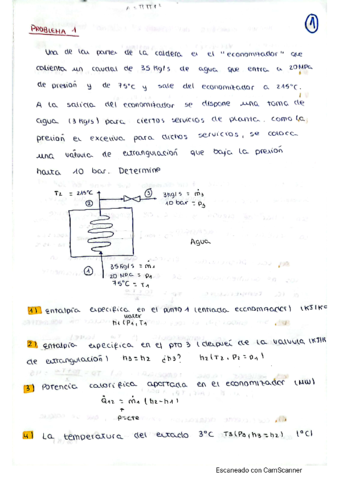 ①
PROBLEMA 1
Una de las partes de la caldera es el "economizador" que
calienta un caudal de 35 kg/s de agua que entra a 20MPa
de presión y de 75ºC y sale del economizador a 215ºC.
A la salida del economizador se dispone una toma de
agua (3 kg/s) para ciertos servicios de planta. como la
presión es excesiva para dichos servicios, se coloca
una válvula de estrangulación que baja la presión
hasta 10 bar. Determine
T2 = 215ºC
②
③
3kg/s = ṁ3
10 bar = P3
Agua
①
35kg/s = ṁ1
20 MPa = P1
75ºC = T1
1) entalpía específica en el punto 1 (entrada economizador) (KJ/KG)
h1 (P1, T1
2) entalpía específica en el pto 3 (después de la válvula
de estrangulación) h3=h2 ¿h3? h2(T2, P2=P1)
3) Potencia calorífica aportada en el economizador (MW)
Q̇12 = ṁ1 (h2-h1)
P=cte
4) La temperatura del estado 3ºC T3(P3,h3=h2) (ºC)
Escaneado con CamScanner